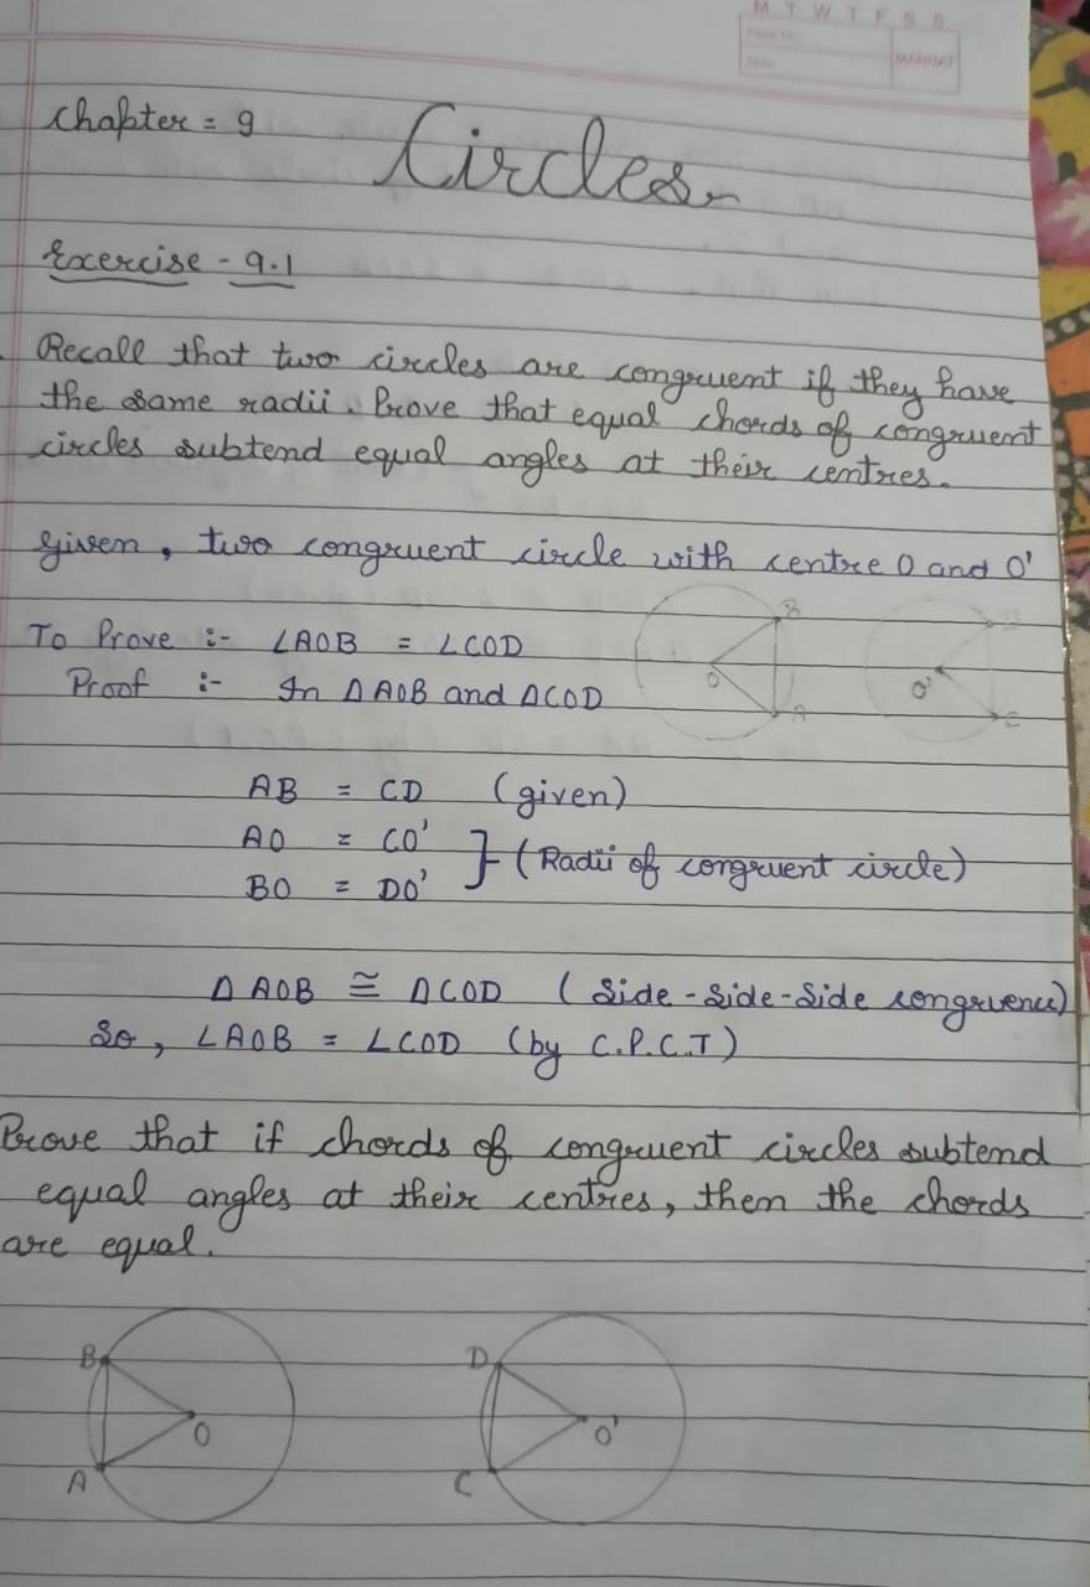 M T W T F S S
Page No.:
Date:
MANNAT
Chapter = 9
Circles
Exercise - 9.1
Recall that two circles are congruent if they have
the same radii. Prove that equal chords of congruent
circles subtend equal angles at their centres.
Given, two congruent circle with centre O and O'
B
To Prove :- ∠AOB = ∠COD
O
O'
Proof :- In △AOB and △COD
A
C
AB = CD (given)
AO = CO'
} (Radii of congruent circle)
BO = DO'
△AOB ≅ △COD (Side-Side-Side congruence)
So, ∠AOB = ∠COD (by C.P.C.T)
Prove that if chords of congruent circles subtend
equal angles at their centres, then the chords
are equal.
B
D
O
O'
A
C